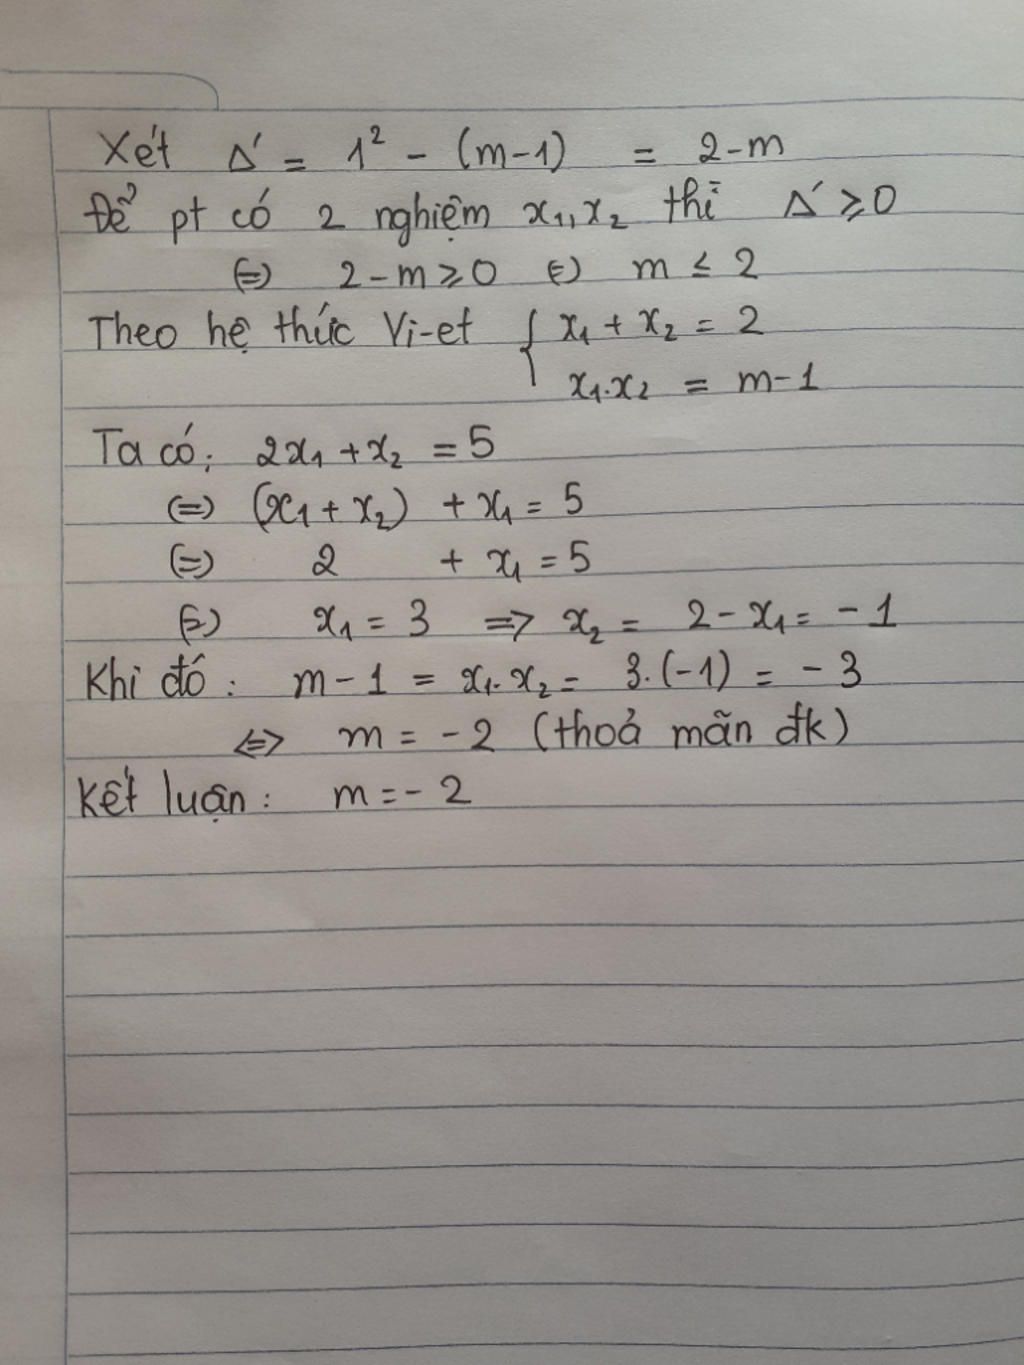 Xét Δ' = 1² - (m-1) = 2-m
Để pt có 2 nghiệm x₁, x₂ thì Δ' ⩾ 0
(=) 2-m ⩾ 0 (=) m ≤ 2
Theo hệ thức Vi-et { x₁ + x₂ = 2
x₁.x₂ = m-1
Ta có: 2x₁ + x₂ = 5
(=) (x₁ + x₂) + x₁ = 5
(=) 2 + x₁ = 5
(=) x₁ = 3 => x₂ = 2 - x₁ = -1
Khi đó: m-1 = x₁.x₂ = 3.(-1) = -3
<=> m = -2 (thoả mãn đk)
Kết luận: m = -2